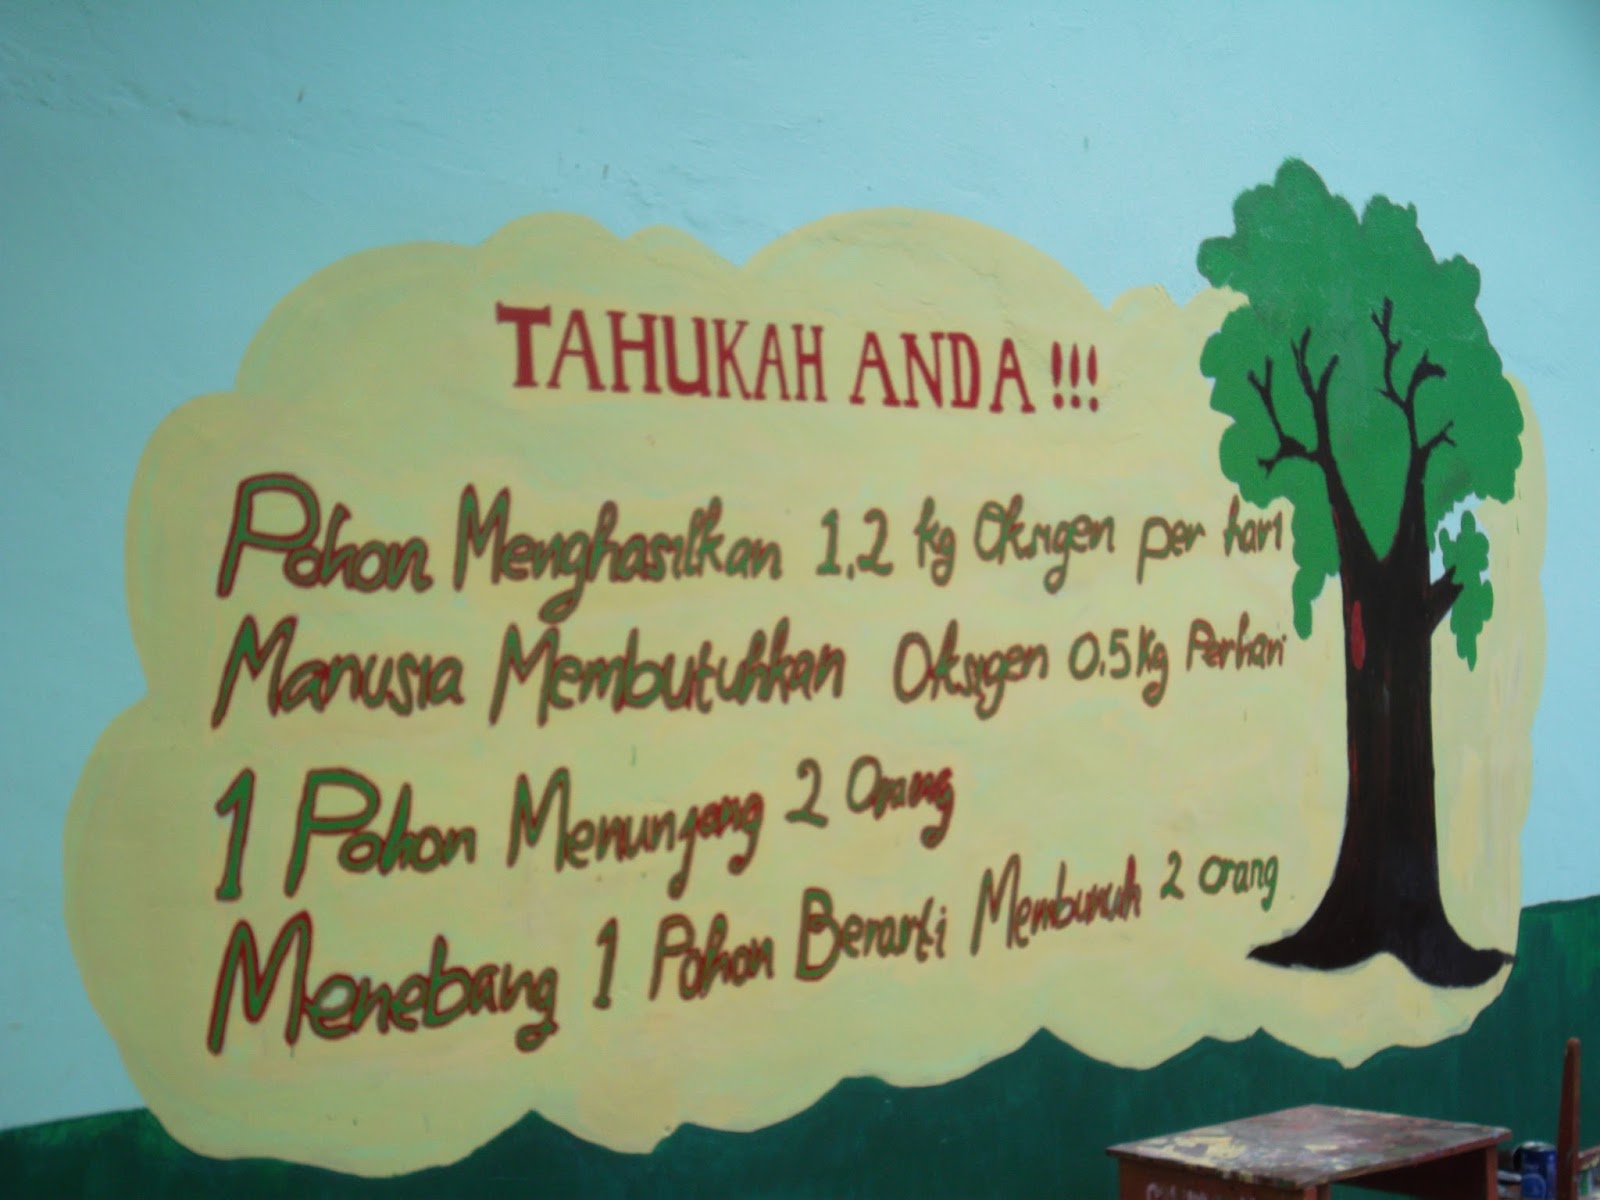 TAHUKAH ANDA !!!
Pohon Menghasilkan 1.2 kg Oksigen per hari
Manusia Membutuhkan Oksigen 0.5 Kg Perhari
1 Pohon Menunjang 2 Orang
Menebang 1 Pohon Berarti Membunuh 2 orang